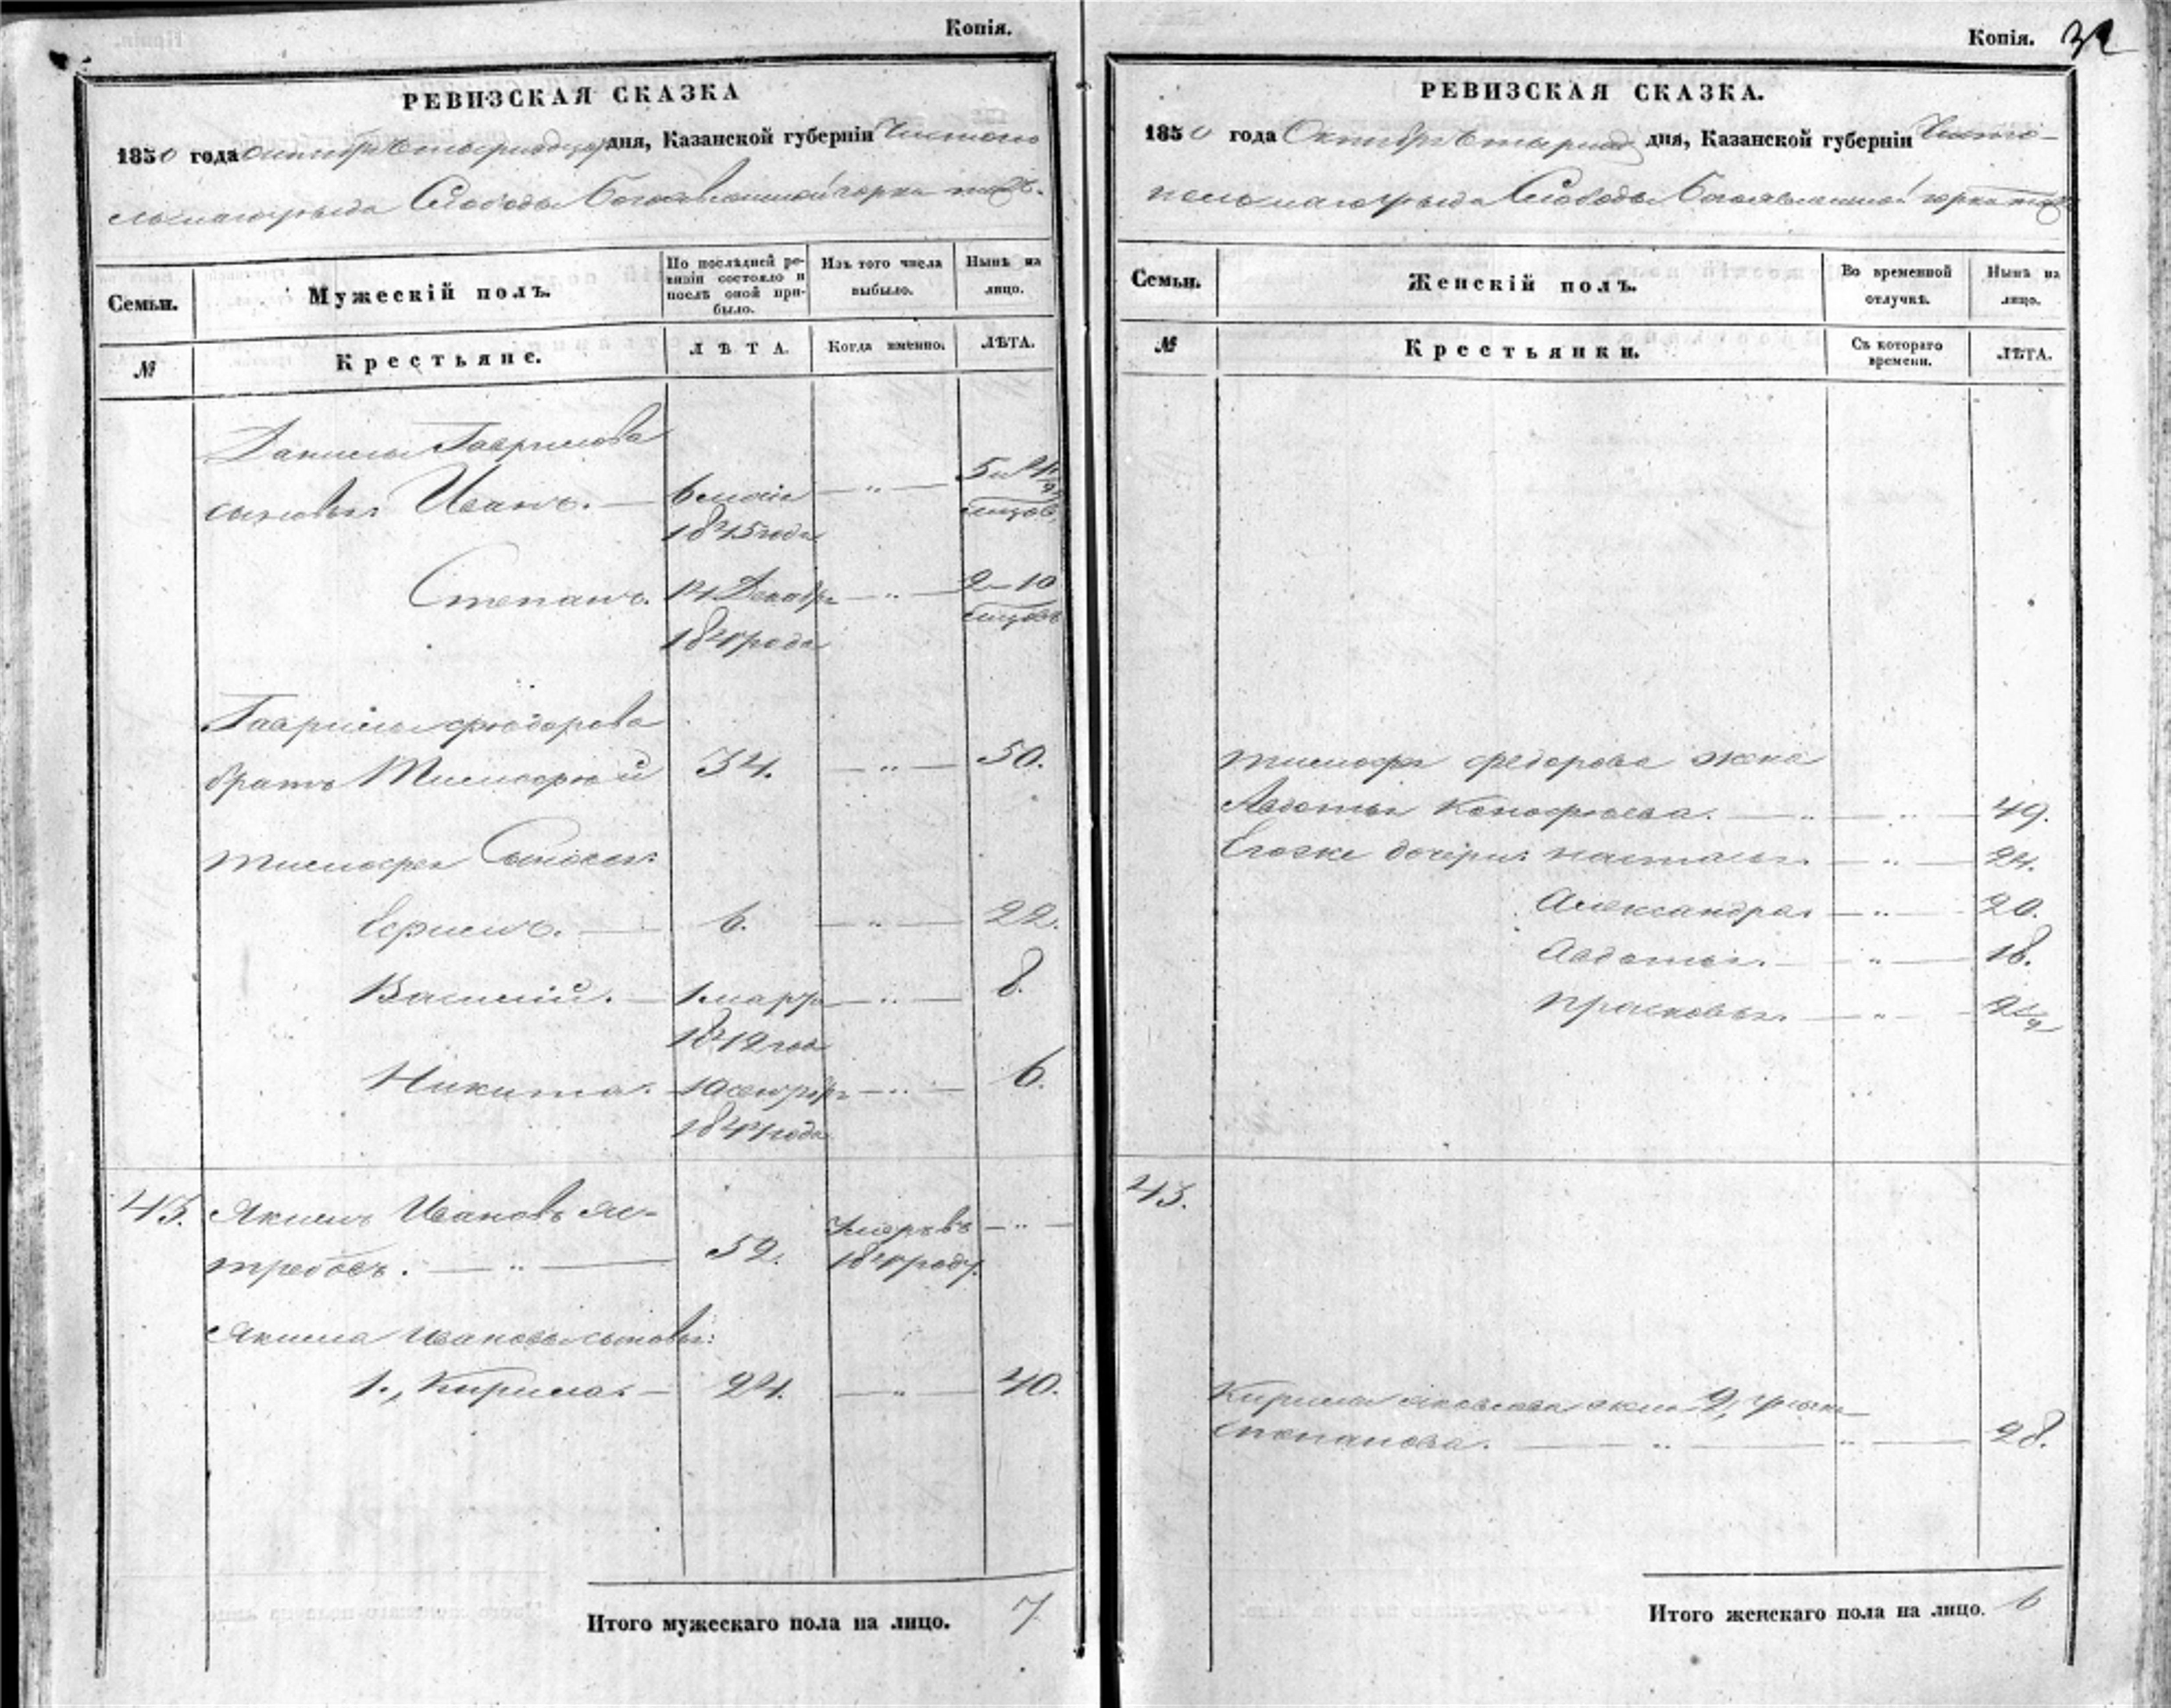 Копія.
РЕВИЗСКАЯ СКАЗКА
1850 года октября дня, Казанской губерніи Чистопо
льскаго уѣзда Слободы Богоявленской горки тожъ.
Семьи.
Мужескій полъ.
По послѣдней ре-
визіи состояло и
послѣ оной при-
было.
Изъ того числа
выбыло.
Нынѣ на
лицо.
№
Крестьяне.
ЛѢТА.
Когда именно.
ЛѢТА.
Данилы Гаврилова
сыновья Иванъ. 6 маія — „ — 5 и
1845 года
Степанъ. 14 Декабря — „ — 2—10
184 года
Гаврилы Федорова
братъ Тимофей 34. — „ — 50.
Тимофея Сыновья:
Ефимъ. — 6. — „ — 22.
Василій. — 1 марта — „ — 8.
1842 года
Никита. 10 сентября — „ — 6.
1844 года
43. Якимъ Ивановъ Яс-
требовъ. — „ — 52. Умеръ въ — „ —
184 году.
Якима Иванова сыновья:
1., Кирила. — 24. — „ — 40.
Итого мужескаго пола на лицо. 7
Копія. 32
РЕВИЗСКАЯ СКАЗКА.
1850 года Октября дня, Казанской губерніи Чисто-
польскаго уѣзда Слободы Богоявленской горки тожъ
Семьи.
Женскій полъ.
Во временной
отлучкѣ.
Нынѣ на
лицо.
№
Крестьянки.
Съ котораго
времени.
ЛѢТА.
Тимофея Федорова жена
Авдотья Конофрьева. — „ — „ — 49.
Егоже дочери: Наталья. — „ — 24.
Александра. — „ — 20.
Авдотья. — „ — 18.
Прасковья. — „ —
43.
Кирилы жена 2,
Степанова. — „ — „ — 28.
Итого женскаго пола на лицо. 6